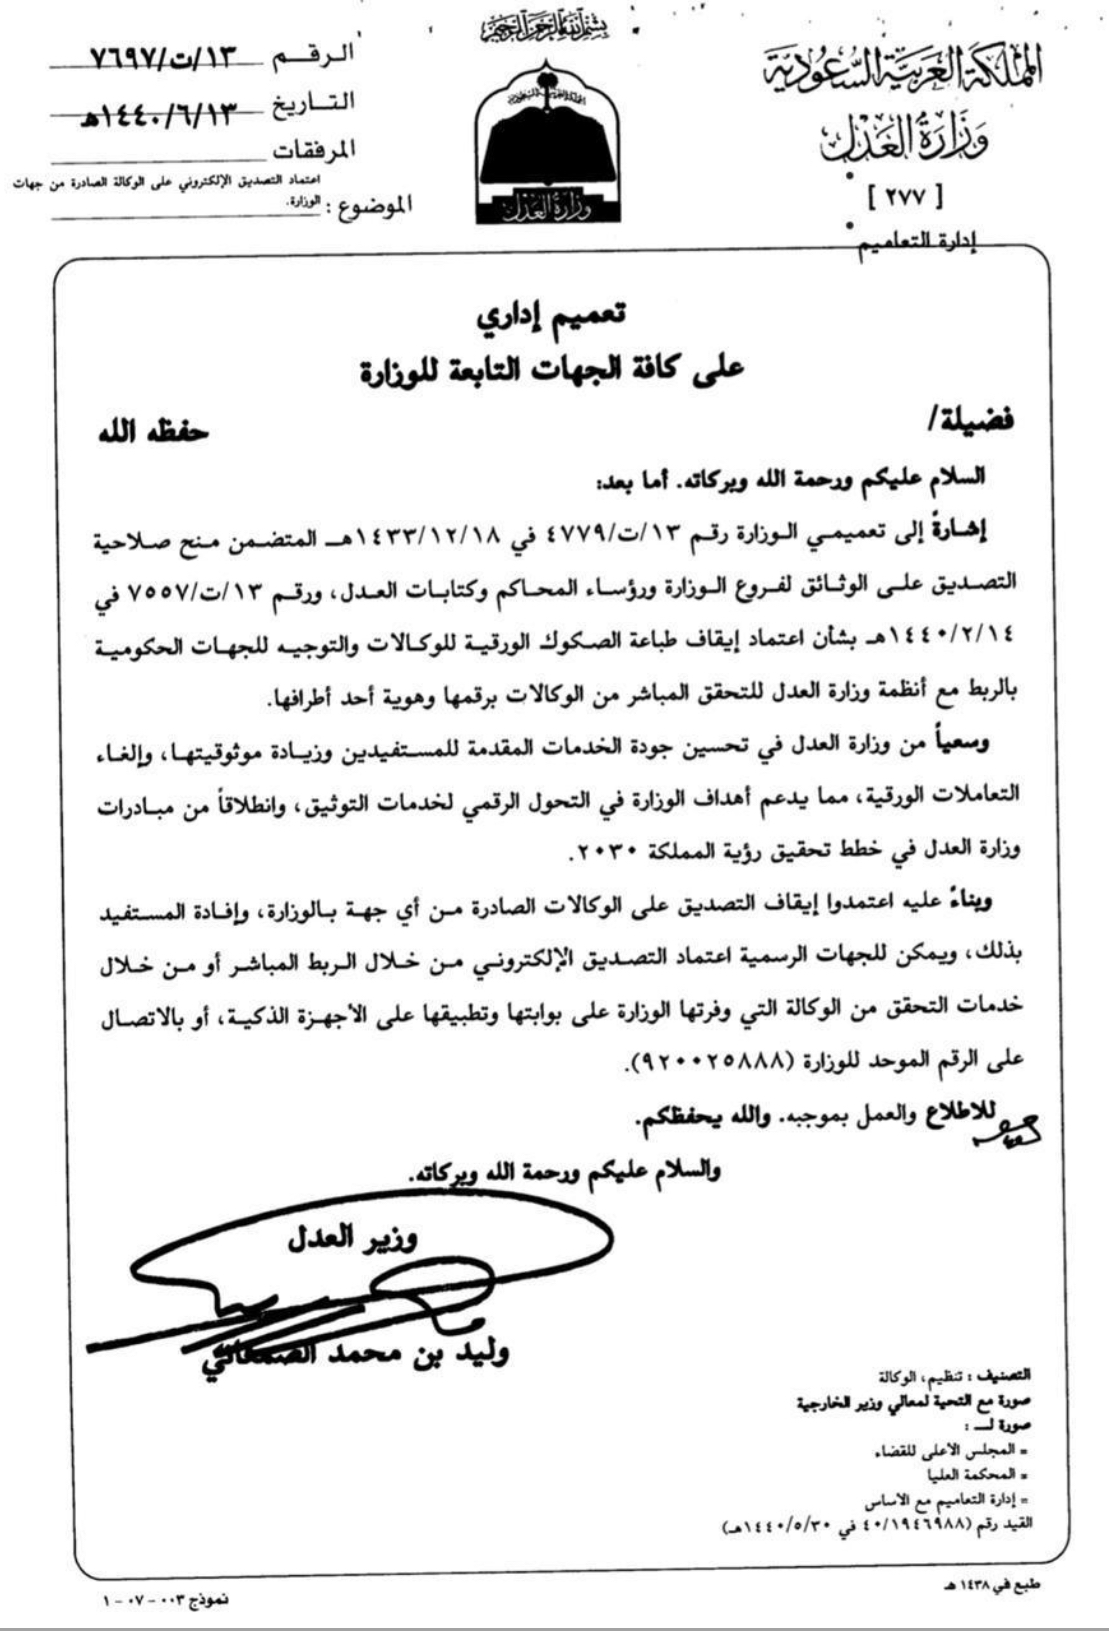 بسم الله الرحمن الرحيم
المملكة العربية السعودية
وزارة العدل
[ ٢٧٧ ]
إدارة التعاميم
وزارة العدل
الرقم ١٣/ت/٧٦٩٧
التاريخ ١٤٤٠/٦/١٣هـ
المرفقات
الموضوع : اعتماد التصديق الإلكتروني على الوكالة الصادرة من جهات
الوزارة.
تعميم إداري
على كافة الجهات التابعة للوزارة
فضيلة/ حفظه الله
السلام عليكم ورحمة الله وبركاته. أما بعد:
إشارةً إلى تعميمي الوزارة رقم ١٣/ت/٤٧٧٩ في ١٤٣٣/١٢/١٨هـ المتضمن منح صلاحية
التصديق على الوثائق لفروع الوزارة ورؤساء المحاكم وكتابات العدل، ورقم ١٣/ت/٧٥٥٧ في
١٤٤٠/٢/١٤هـ بشأن اعتماد إيقاف طباعة الصكوك الورقية للوكالات والتوجيه للجهات الحكومية
بالربط مع أنظمة وزارة العدل للتحقق المباشر من الوكالات برقمها وهوية أحد أطرافها.
وسعياً من وزارة العدل في تحسين جودة الخدمات المقدمة للمستفيدين وزيادة موثوقيتها، وإلغاء
التعاملات الورقية، مما يدعم أهداف الوزارة في التحول الرقمي لخدمات التوثيق، وانطلاقاً من مبادرات
وزارة العدل في خطط تحقيق رؤية المملكة ٢٠٣٠.
وبناءً عليه اعتمدوا إيقاف التصديق على الوكالات الصادرة من أي جهة بالوزارة، وإفادة المستفيد
بذلك، ويمكن للجهات الرسمية اعتماد التصديق الإلكتروني من خلال الربط المباشر أو من خلال
خدمات التحقق من الوكالة التي وفرتها الوزارة على بوابتها وتطبيقها على الأجهزة الذكية، أو بالاتصال
على الرقم الموحد للوزارة (٩٢٠٠٢٥٨٨٨).
للاطلاع والعمل بموجبه. والله يحفظكم.
والسلام عليكم ورحمة الله وبركاته.
وزير العدل
وليد بن محمد الصمعاني
التصنيف : تنظيم، الوكالة
صورة مع التحية لمعالي وزير الخارجية
صورة لـــ :
= المجلس الأعلى للقضاء
= المحكمة العليا
= إدارة التعاميم مع الأساس
القيد رقم (٤٠/١٩٤٦٩٨٨ في ١٤٤٠/٥/٣٠هـ)
طبع في ١٤٣٨ هـ
نموذج ٠٠٣ - ٠٧ - ١